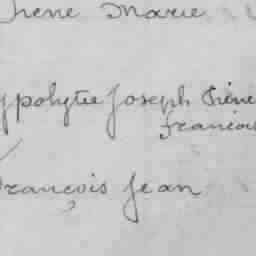 Irène Marie
ypolytte Joseph Irène
francois
françois Jean